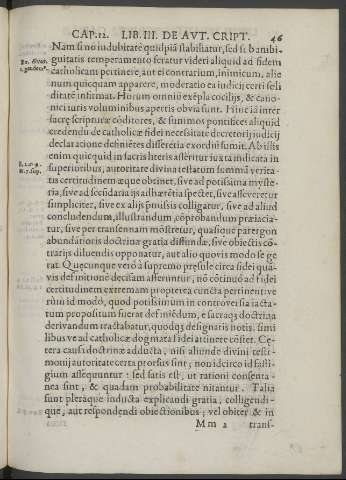 CAP. 12. LIB. III. DE AVT. CRIPT. 46
Nam si no indubitate quidpiā stabiliatur, sed sc̄ bambi-
guitatis temperamento feratur videri aliquid ad fidem
catholicam pertinere, aut ei contrarium, inimicum, alie
num quicquam apparere, moderatio ea iudicij certi seli
ditatē infirmat. Horum omniū exēpla cocilijs, & cano-
nici iuris voluminibus apertis obvia sunt. Hinc iā inter
sacre scripturæ cōditores, & summos pontifices aliquid
credendū de catholicæ fidei necessitate decretorij iudicij
declaratione definiētes disserētia exordiū sumit. Ab illis
enim quicquid in sacris literis asseritur iuxta indicata in
superioribus, autoritate divina testatum summā verita-
tis certitudinem æque obtinet, sive ad potissima myste-
ria, sive ad secūdaria ijs adhærētia spectet, sive asseveretur
simpliciter, sive ex alijs pmissis colligatur, sive ad aliud
concludendum, illustrandum, cōprobandum præiacia-
tur, sive per transennam mōstretur, quasique parergon
abundātioris doctrinæ gratia diffundæ, sive obiectis cō-
trarijs diluendis opponatur, aut alio quovis modo se ge
rat. Quęcunque verò à supremo pręsule circa fidei quæ-
vis definitione decisam asseruntur, nō cōtinuò ad fidei
certitudinem extremam propterea cuncta pertinent ve
rùm id modò, quod potissimum in controversia iacta-
tum propositum fuerat definiēdum, e sacraqȝ doctrina
derivandum tractabatur, quodqȝ designatis notis, simi
libus ve ad catholicæ dogmata fidei attinere cōstet. Cę-
tera causa doctrinæ adducta, nisi aliunde divini testi-
monij autoritate certa prorsus sint, non idcirco id fasti-
gium assequuntur: sed satis est, ut rationi consenta-
nea sint, & quadam probabilitate nitantur. Talia
sunt pleraque inducta explicandi gratia, colligendi-
que, aut respondendi obiectionibus; vel obiter & in
Mm 2 trans-